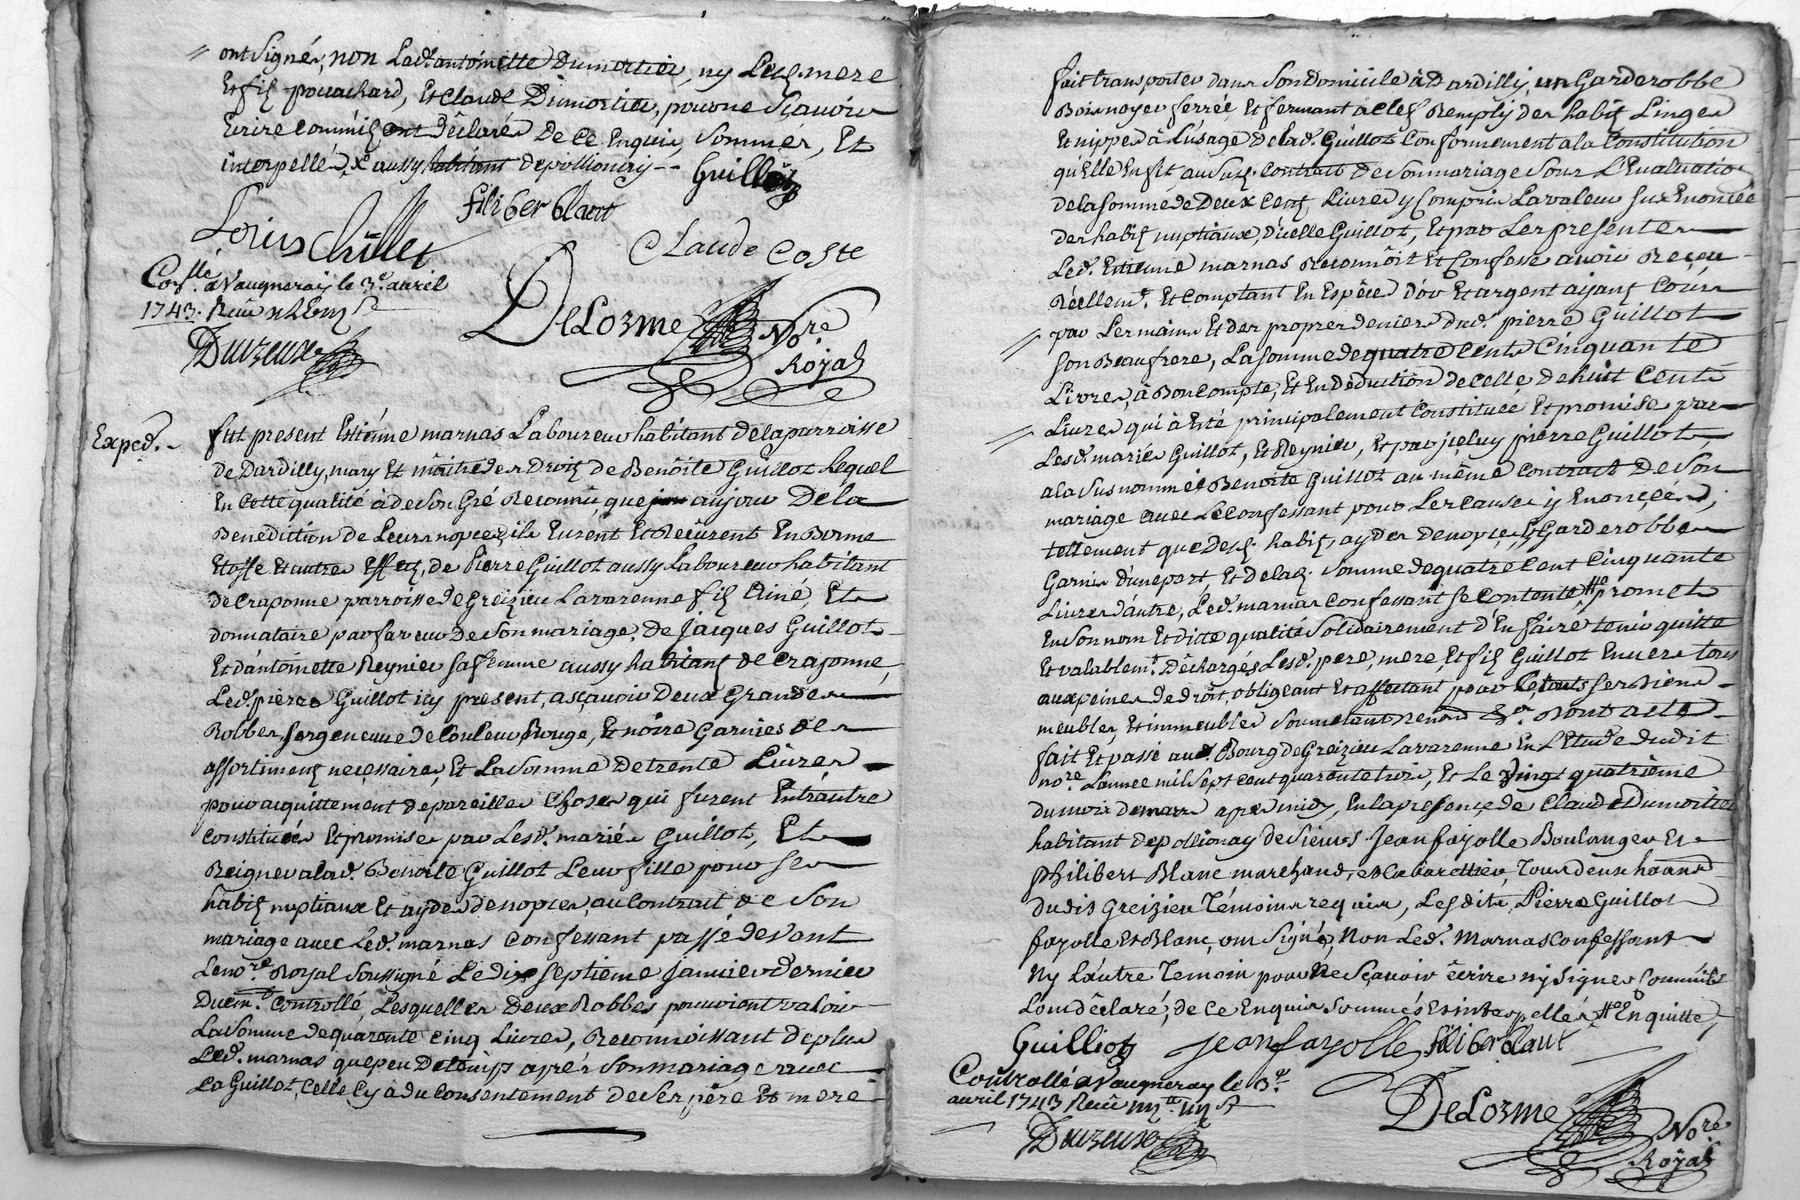 ont signés, non Lad. antoinette Dumortier, ny Lesd. mere
Et fils pouachard, Et Claude Dimortier, pour ne sçavoir
Ecrire comm'ils ont déclarés De Ce Enquis, Sommés, Et
interpellés, x aussy habitant depollionay -- Guilliot
filiber blant
Louis Chillet
Claude Coste
Con.llé a Vaugneray le 3.e avril
1743. Reçu
DeLorme No.re
Royal
Duvzeux
Exped.
fut present Estienne marnas Laboureur habitant delaparroisse
de Dardilly, mary Et maitre des Droits de Benôite Guillot Lequel
En Cette qualité a de Son Gré Reconnû, que jou aujour De la
Benediction de Leurs nopces, ils Eurent Et Reçurent En Bonne
Etoffe Et autres Effets, de Pierre Guillot aussy Laboureur habitant
de Craponne parroisse de Greizieu Lavarenne fils Ainé, Et
donnataire par faveur De Son mariage, De Jacques Guillot
Et d'antoinette Reynier Sa femme aussy habitants de Craponne,
Led. pierre Guillot icy present, asçavoir Deux Grandes
Robbes, Serge neuve de Couleur Rouge, Et noire Garnies des
assortiments necessaires, Et La Somme De trente Livres
pour acquittement de pareilles Choses qui furent Entr'autre
Constituées Et promises par Lesd. mariés Guillot, Et
Reignier a lad. Benoite Guillot Leur fille pour ses
habits nuptiaux Et aydes de nopces, au Contrait de Son
mariage avec Led. marnas Confessant passé devant
Le no.re Royal Soussigné Le dix Septieme Janvier Dernier
Duem.t Controllé, Lesquelles Deux Robbes pouvoient valoir
La Somme de quarante Cinq Livres, Reconnoissant de plus
Led. marnas que peu De temps aprés Son mariage avec
La Guillot, Celle Cy a du Consentement de Ses pére Et mere
fait transporter dans Son Domicile à Dardilly, un Garderobbe
Bois noyer ferrée, Et fermant a Clef Remply des habits Linges
Et nippes à L'usage De lad. Guillot Conformement a la Constitution
qu'Elle En fit au Susd. Contract de Son mariage Sous L'Evaluation
de la Somme de Deux Cents Livres y Compris La valeur Sus Enoncée
des habits nuptiaux, d'icelle Guillot, Et par Les presentes
Led. Estienne marnas Reconnôit Et Confesse avoir Reçeu
Réellem.t Et Comptant En Espéce D'or Et argent ajant Cours
par Les mains Et des propres deniers dud. pierre Guillot
Son Beaufrere, La Somme de quatre Cents Cinquante
Livres, à Bon Compte, Et En Deduction de Celle De huit Cents
Livres qui a Eté principalement Constituée Et promise par
Lesd. mariés Guillot, Et Reynier, Et par iceluy pierre Guillot
a la Susnommée Benoite Guillot au même Contract De Son
mariage avec Le Confessant pour Les Causes y Enonçées,
tellement que Desd. habits, aydes de nopces, Et Garderobbe
Garnie d'une part, Et de lad. Somme de quatre Cent Cinquante
Livres d'autre, Led. marnas Confessant se Contente # promet
En Son nom Et Dicte qualité Solidairement d'En faire tenir quitte
Et valablem.t Déchargés Lesd. pere, mere, Et fils Guillot Envers tous
aux peines de droit, obligeant Et affectant pour Ce, touts Ses Biens
meubles, Et immeubles Soumetant Renonç &.a Dont acte
fait Et passé au Bourg de Greizieu Lavarenne En L'Etude dudit
no.re L'annee mil Sept cent quarente trois, Et Le Vingt quatrième
du mois de mars aprés midy, En la presençe, de Claude Dumortier
habitant de pollionay de Sieurs Jean fayolle Boulanger Et
Philibert Blanc marchand, et Cabarettier, Tous deux habitants
dudit Greizieu Témoins requis, Lesdits Pierre Guillot
fayolle Et Blanc, ont Signé, Non Led. Marnas Confessant
Ny L'autre Temoin pour Ne Sçavoir écrire ny Signer Comm'ils
L'ont déclaré, de Ce Enquis Sommés Et interpellés # Et En quitte,
Guilliot Jean fayolle filiber blant
Controllé a Vaugneray le 3.e
avril 1743 Reçu
Duvzeux
DeLorme No.re
Royal